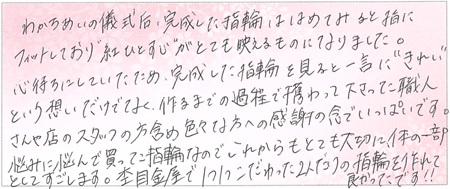 わかちあいの儀式后、完成した指輪ははめてみると指に
フィットしており"紅ひとすじ"がとても映えるものになりました。
心待ちにしていたため、完成した指輪を見ると一言に"きれい"
という想いだけでなく、作るまでの過程で携わって下さった職人
さんや店のスタッフの方含め色々な方への感謝の念でいっぱいです。
悩みに悩んで買った指輪なのでこれからもとても大切に体の一部
としてすごします。杢目金屋で1つ1つこだわった2人だけの指輪を作れて
良かったです!!